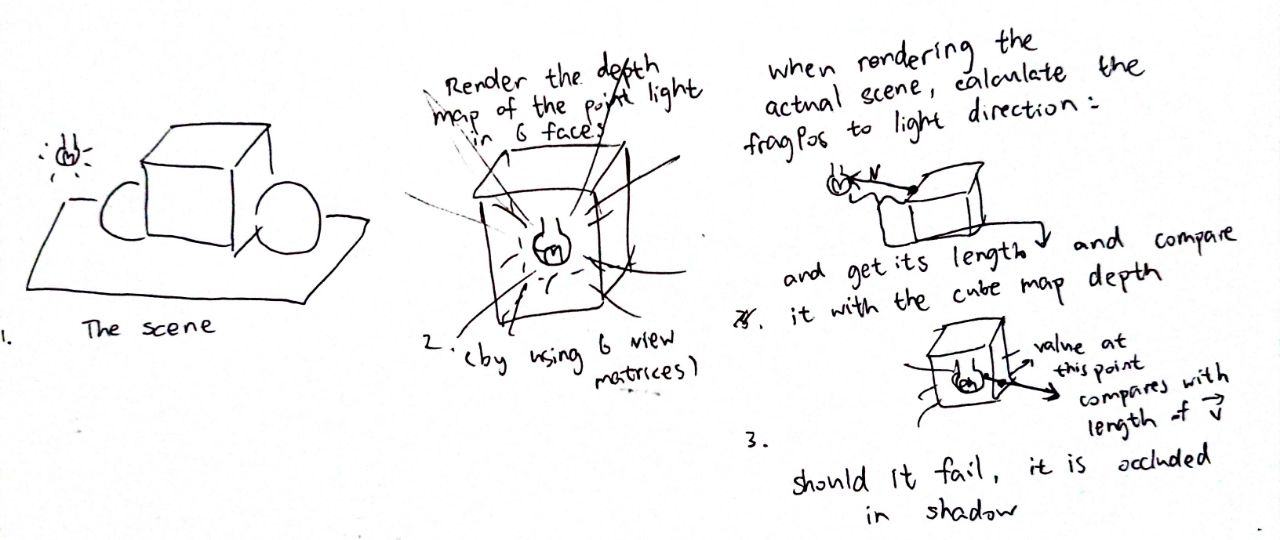 1. The scene
Render the depth
map of the point light
in 6 faces
2. (by using 6 view
matrices)
when rendering the
actual scene, calculate the
fragPos to light direction:
V
and get its length and compare
it with the cube map depth
value at
this point
compares with
length of V
3.
should it fail, it is occluded
in shadow